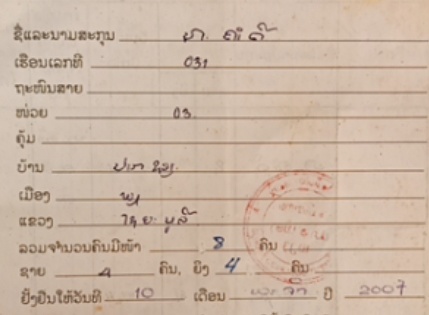 ຊື່ແລະນາມສະກຸນ ທ. ຄຳດີ
ເຮືອນເລກທີ 031
ຖະໜົນສາຍ
ໜ່ວຍ 03
ຄຸ້ມ
ບ້ານ
ເມືອງ
ແຂວງ ໄຊຍະບູລີ
ລວມຈຳນວນຄົນມີໜ້າ 8 ຄົນ
ຊາຍ 4 ຄົນ, ຍິງ 4 ຄົນ
ຢັ້ງຢືນໃຫ້ວັນທີ 10 ເດືອນ ປີ 2007